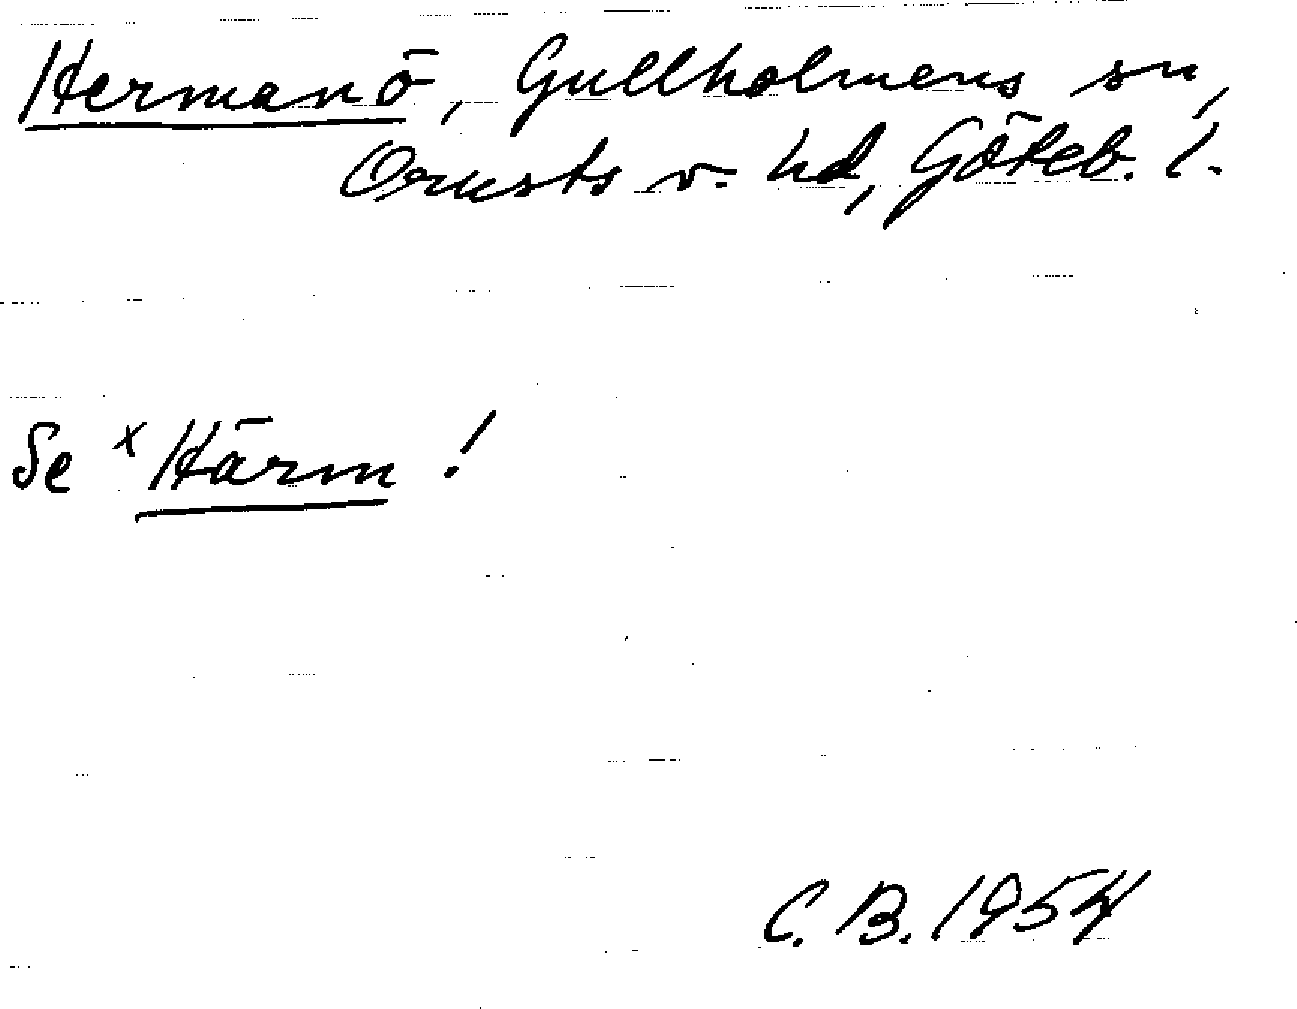 Hermanö, Gullholmens sn,
Orusts v. hd, Göteb. l.
Se x Härm!
C. B. 1954